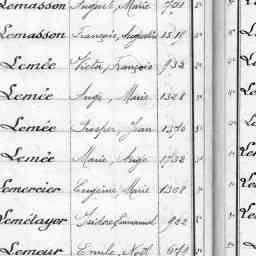 Lemasson August, Marie 701
Lemasson François, Augustin 1518
Lemée Victor, François 932
Lemée Ange, Marie 1328
Lemée Prosper, Jean 1370
Lemée Marie, Ange 1732
Lemercier Eugène, Marie 1308
Lemétayer Isidore, Emmanuel 922
Lemeur Emile, Noël 679